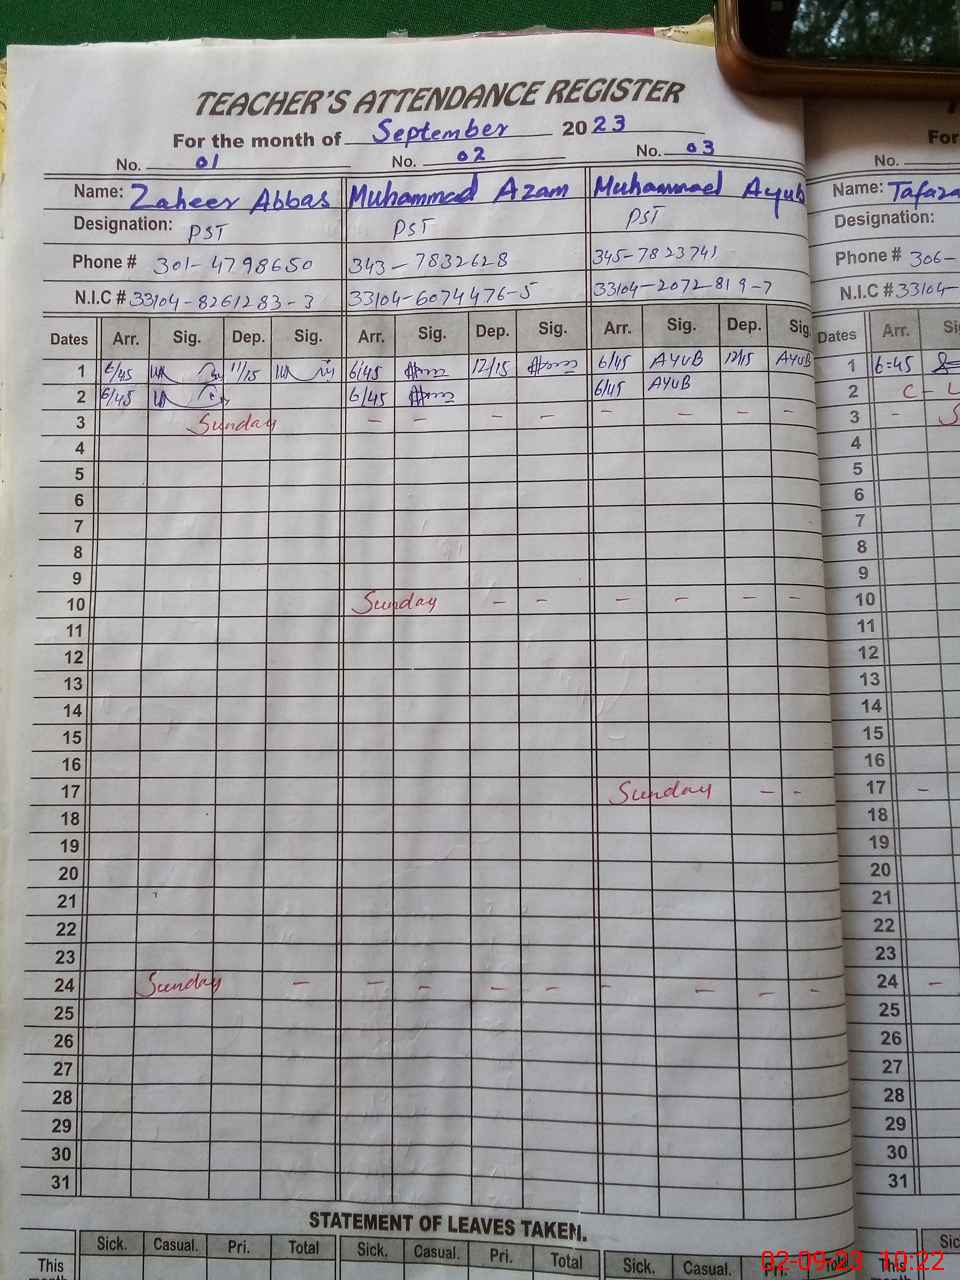 TEACHER'S ATTENDANCE REGISTER
For the month of September 2023
No. 01 No. 02 No. 03 No.
Name: Zaheer Abbas Muhammad Azam Muhammad Ayub Name:
Designation: PST PST PST Designation:
Phone # 301-4798650 343-7832628 345-7823741 Phone # 306-
N.I.C # 33104-8261283-3 33104-6074476-5 33104-2072819-7 N.I.C # 33104-
Dates Arr. Sig. Dep. Sig. Arr. Sig. Dep. Sig. Arr. Sig. Dep. Sig. Dates Arr.
1 6/45 11/15 6/45 12/15 6/45 AYUB 12/15 AYUB 1 6=45
2 6/45 6/45 6/45 AYUB 2 C-L
3 Sunday - - - - - - - - 3 -
4 4
5 5
6 6
7 7
8 8
9 9
10 Sunday - - - - - - 10
11 11
12 12
13 13
14 14
15 15
16 16
17 Sunday - - 17 -
18 18
19 19
20 20
21 21
22 22
23 23
24 Sunday - - - - - - - - - 24 -
25 25
26 26
27 27
28 28
29 29
30 30
31 31
STATEMENT OF LEAVES TAKEN.
Sick. Casual. Pri. Total Sick. Casual. Pri. Total Sick. Casual. Pri.
This This
02-09-23 10:22